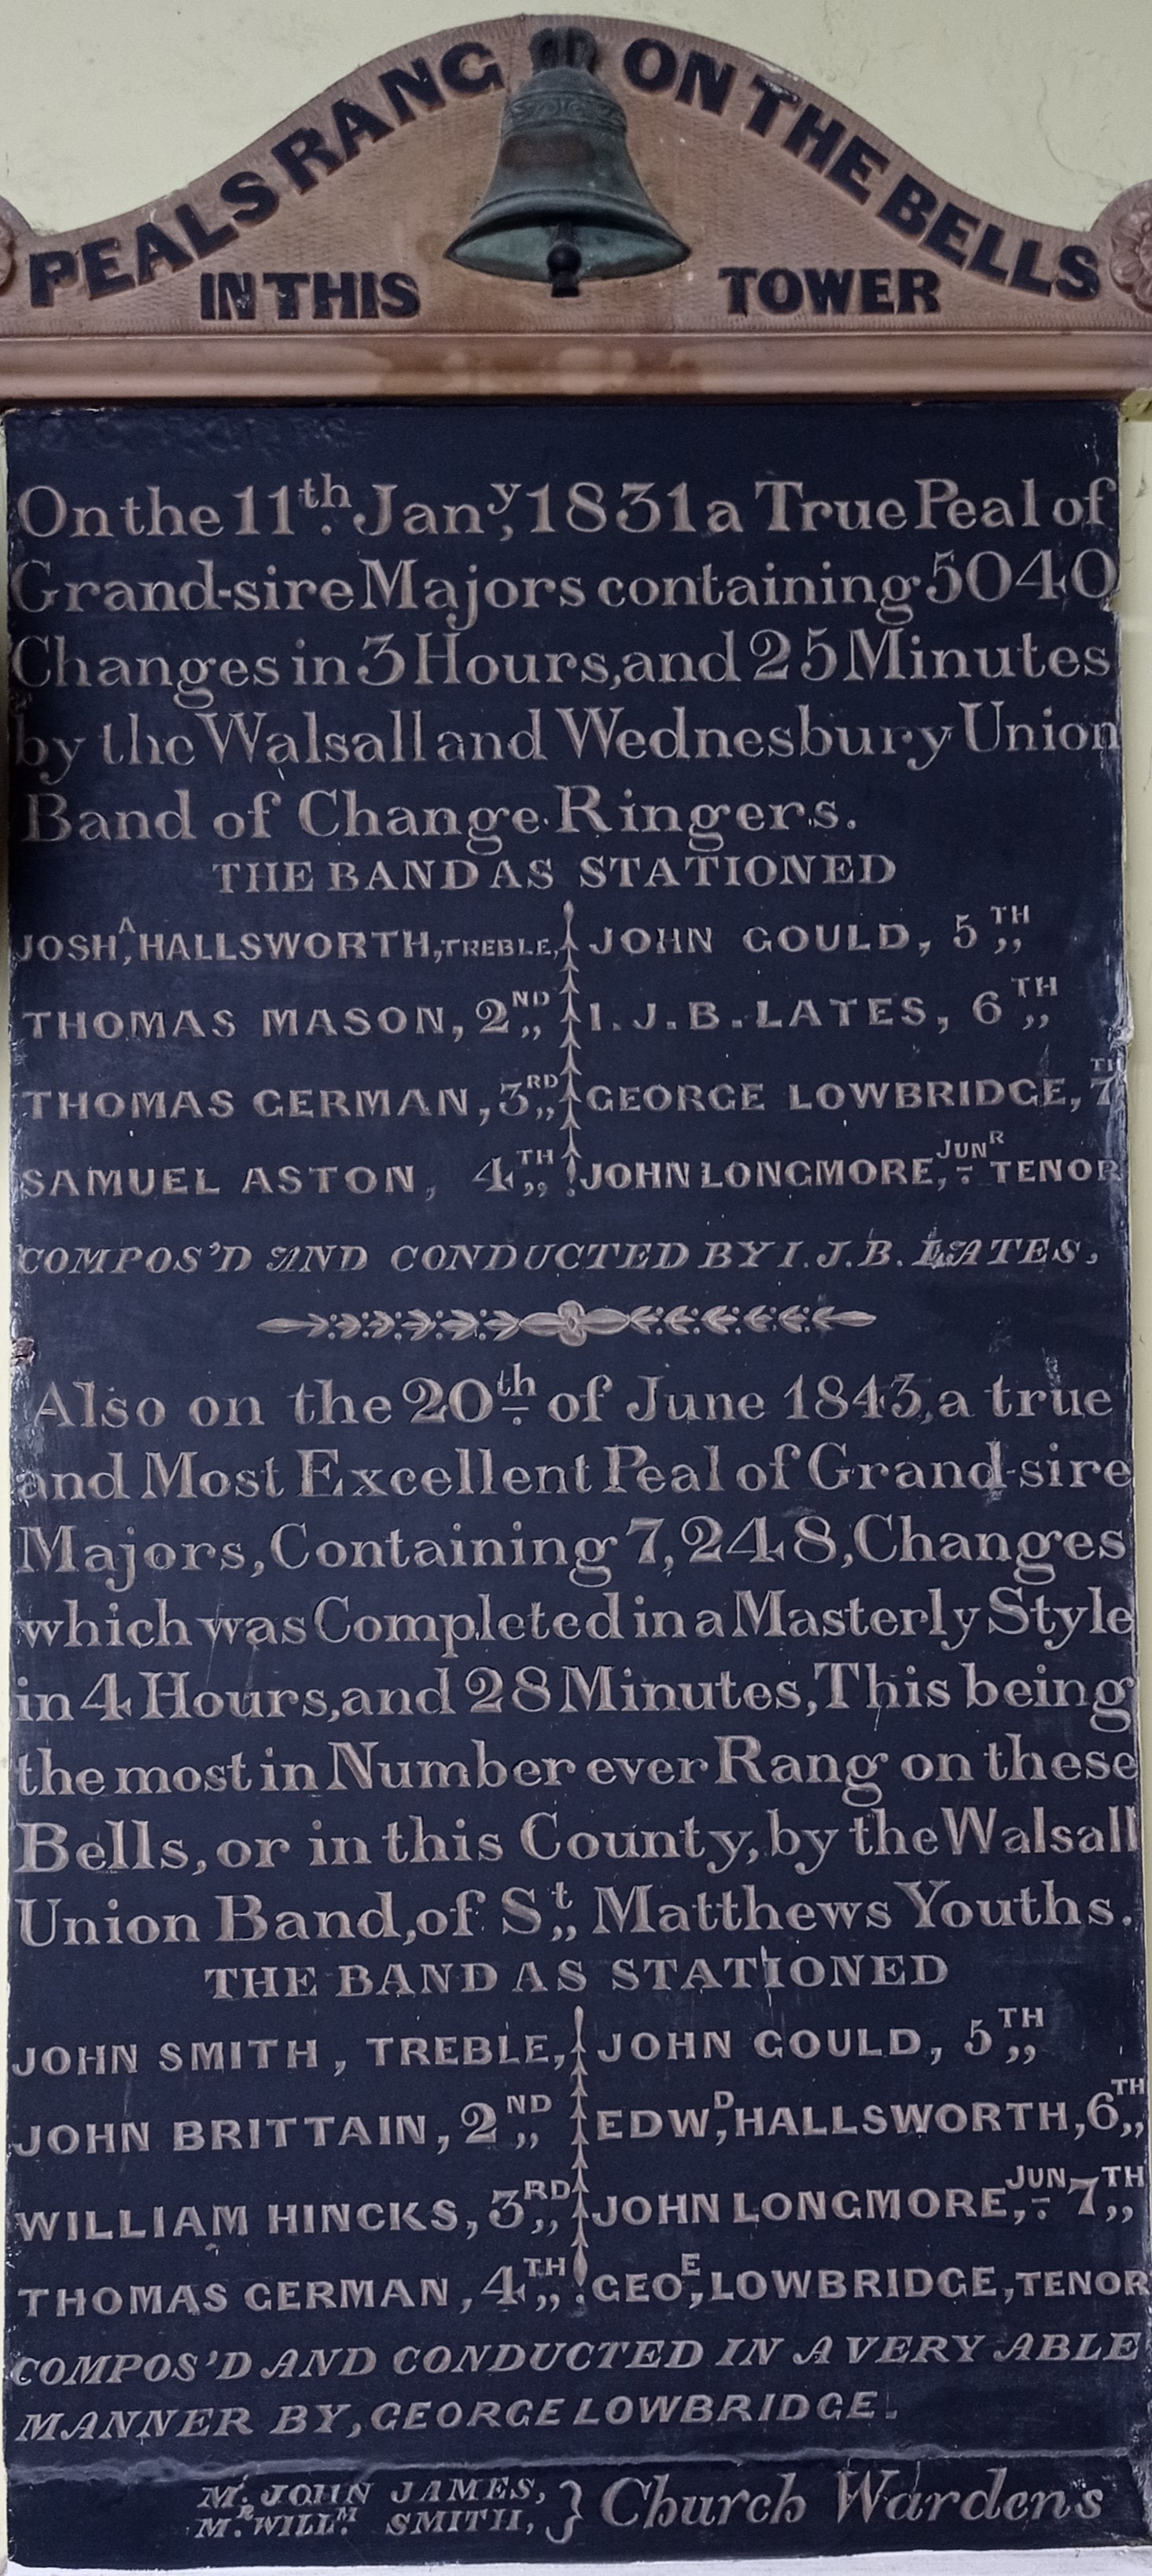 PEALS RANG ON THE BELLS
IN THIS TOWER
On the 11th. Jany, 1831 a True Peal of
Grand-sire Majors containing 5040
Changes in 3 Hours, and 25 Minutes
by the Walsall and Wednesbury Union
Band of Change Ringers.
THE BAND AS STATIONED
JOSHA, HALLSWORTH, TREBLE, JOHN GOULD, 5TH,,
THOMAS MASON, 2ND,, I. J. B. LATES, 6TH,,
THOMAS GERMAN, 3RD,, GEORGE LOWBRIDGE, 7TH
SAMUEL ASTON, 4TH,, JOHN LONGMORE, JUNR TENOR
COMPOS'D AND CONDUCTED BY I. J. B. LATES,
Also on the 20th of June 1843, a true
and Most Excellent Peal of Grand-sire
Majors, Containing 7,248, Changes
which was Completed in a Masterly Style
in 4 Hours, and 28 Minutes, This being
the most in Number ever Rang on these
Bells, or in this County, by the Walsall
Union Band, of St,, Matthews Youths.
THE BAND AS STATIONED
JOHN SMITH, TREBLE, JOHN GOULD, 5TH,,
JOHN BRITTAIN, 2ND,, EDWD, HALLSWORTH, 6TH,,
WILLIAM HINCKS, 3RD,, JOHN LONGMORE, JUN 7TH,,
THOMAS GERMAN, 4TH,, GEOE, LOWBRIDGE, TENOR
COMPOS'D AND CONDUCTED IN A VERY ABLE
MANNER BY, GEORGE LOWBRIDGE.
Mr. JOHN JAMES, } Church Wardens
MR. WILLM. SMITH,